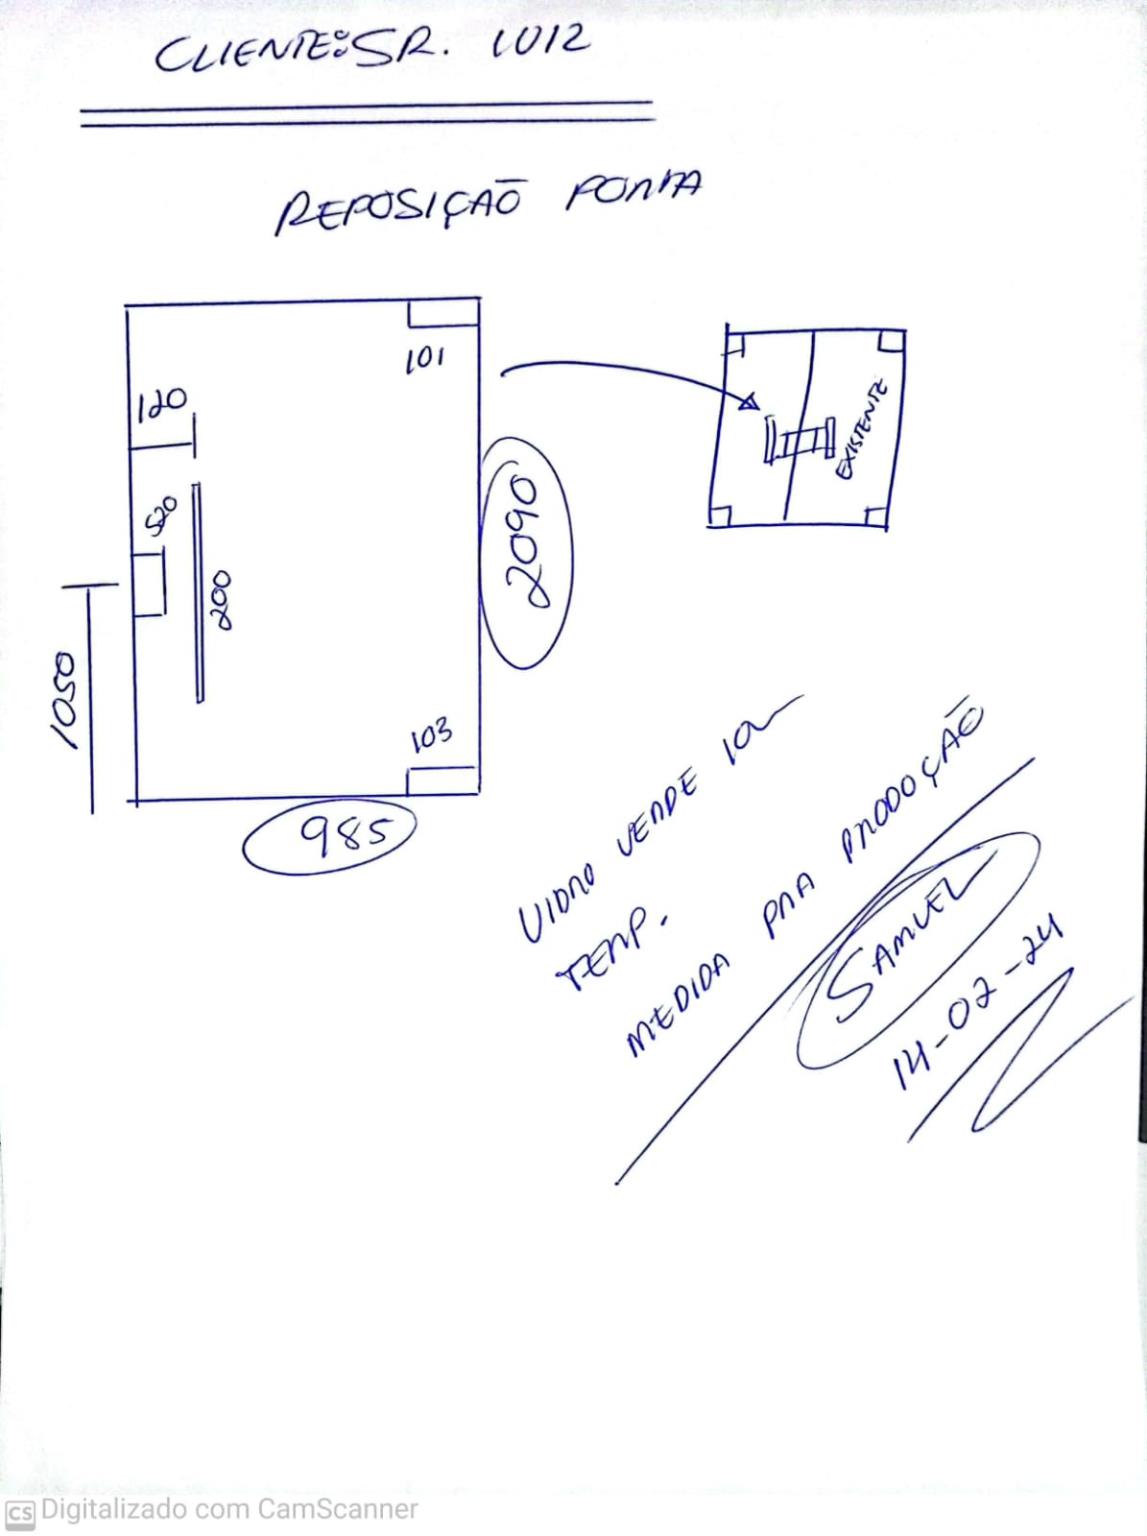 CLIENTE: SR. LUIZ
REPOSIÇÃO PORTA
101
120
520
200
1050
2090
103
985
EXISTENTE
VIDRO VERDE 10
TEMP.
MEDIDA PRA PRODUÇÃO
SAMUEL
14-02-24
CS Digitalizado com CamScanner